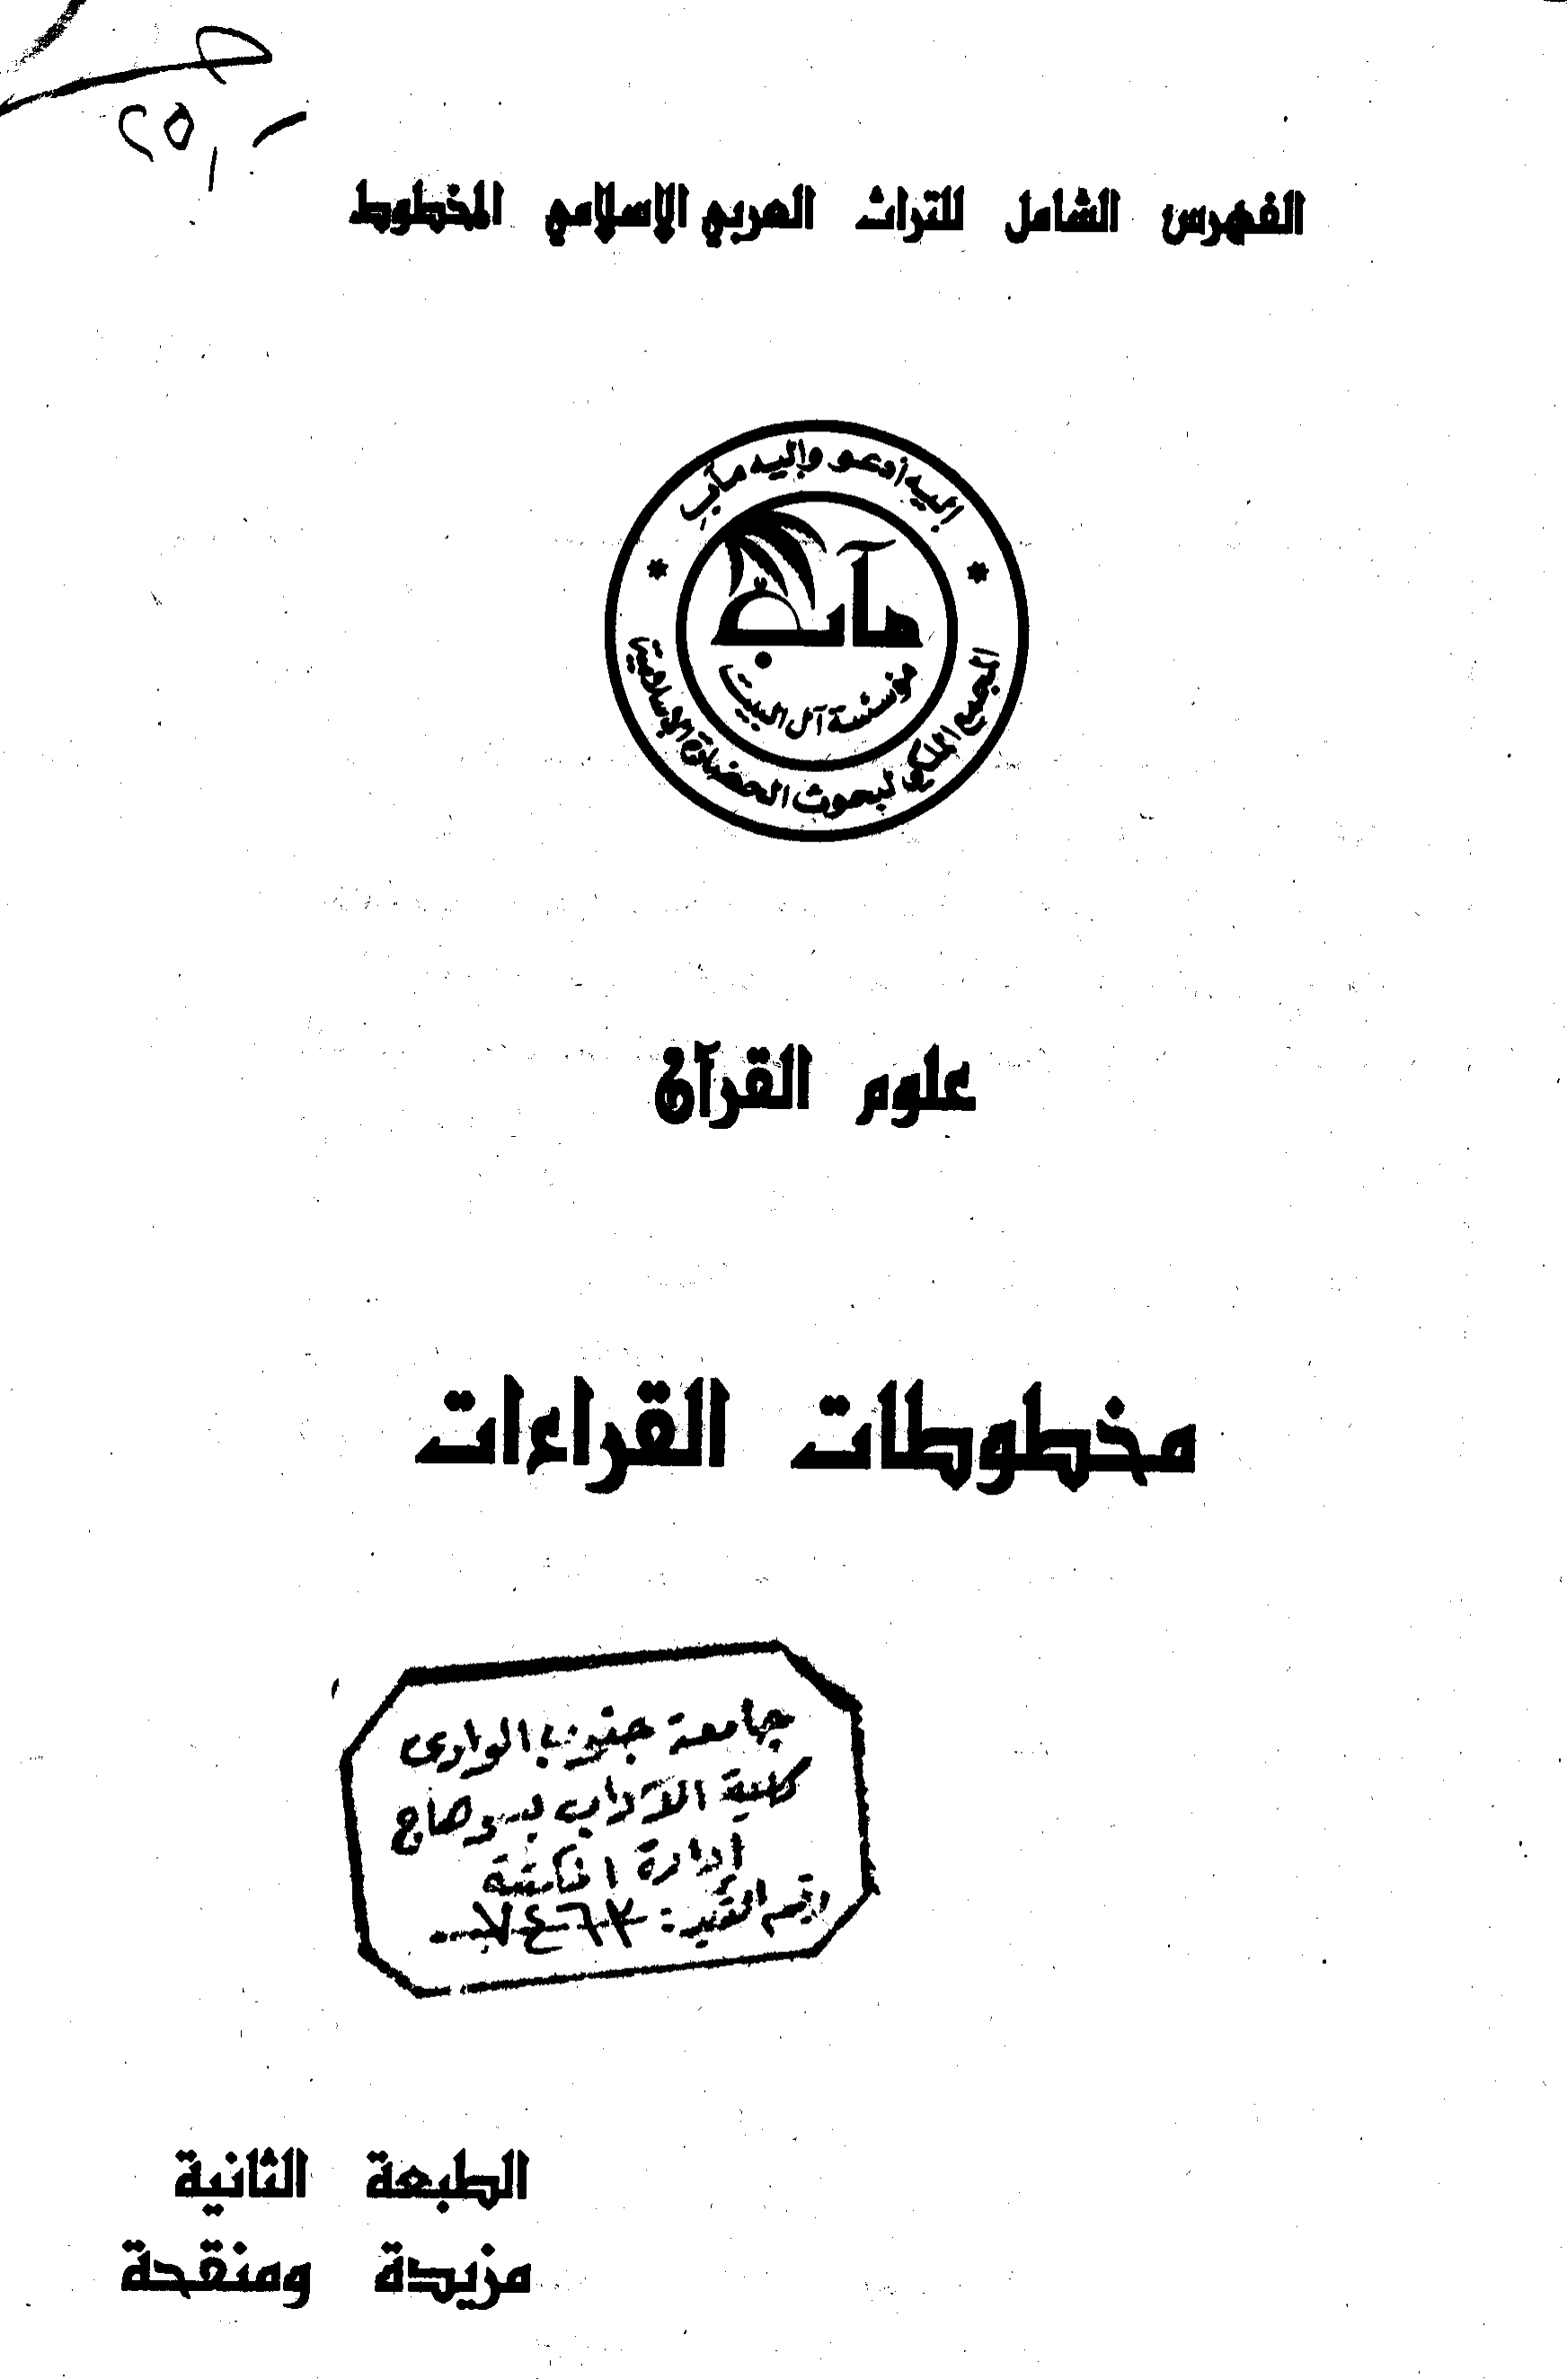 ٢٥,-
الفهرس الشامل للتراث العربي الاسلامي المخطوط
إليه أدعو وإليه مآب
مآب
مؤسسة آل البيت
المجمع الملكي لبحوث الحضارة الإسلامية
علوم القرآن
مخطوطات القراءات
جامعة جنوب الوادى
كلية الآداب بسوهاج
إدارة المكتبة
رقم القيد: ٧٤٦٣
الطبعة الثانية
مزيدة ومنقحة